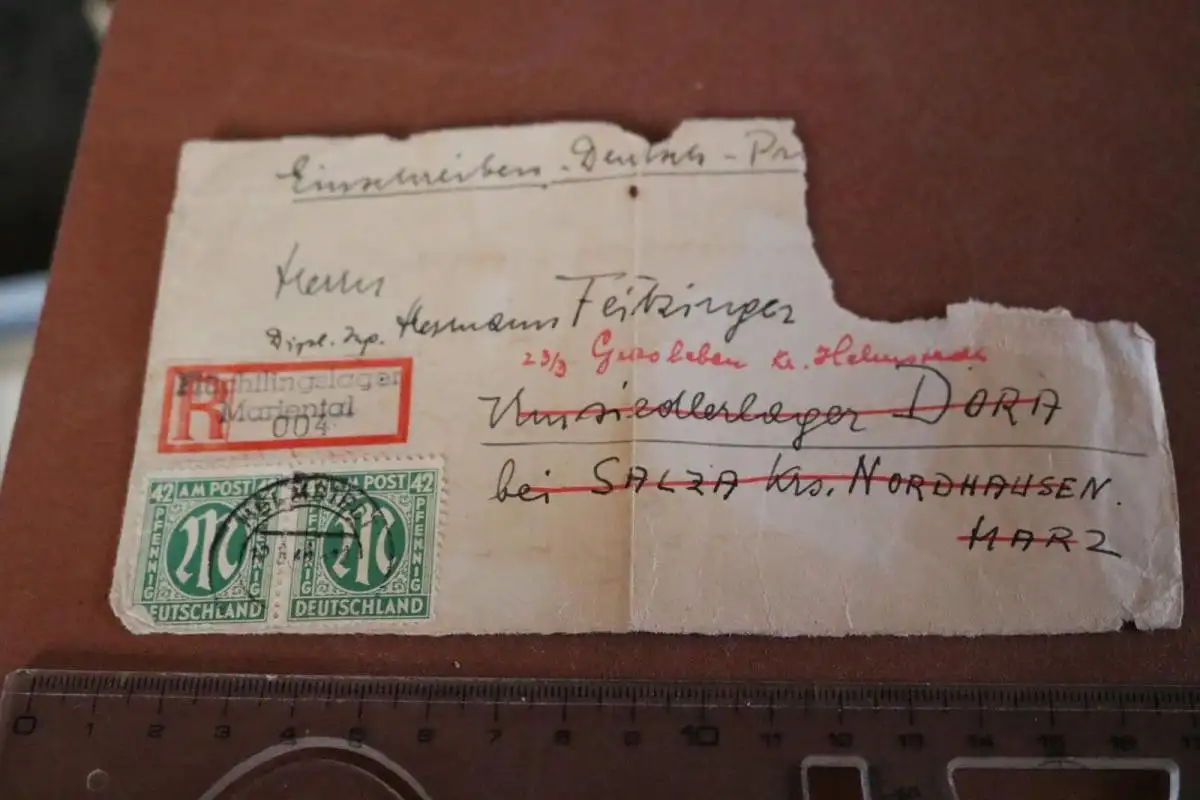 Einschreiben - Deutsch - Pr
Herrn
Dipl. Ing. Hermann Feitzinger
23/3 Grasleben Kr. Helmstedt
Umsiedlerlager DORA
bei SALZA Krs. NORDHAUSEN.
HARZ
R
Flüchtlingslager
Mariental
004
42 AM POST 42 AM POST 42
PFENNIG PFENNIG PFENNIG
M M
EUTSCHLAND DEUTSCHLAND
0 1 2 3 4 5 6 7 8 9 10 11 12 13 14 15 16 17